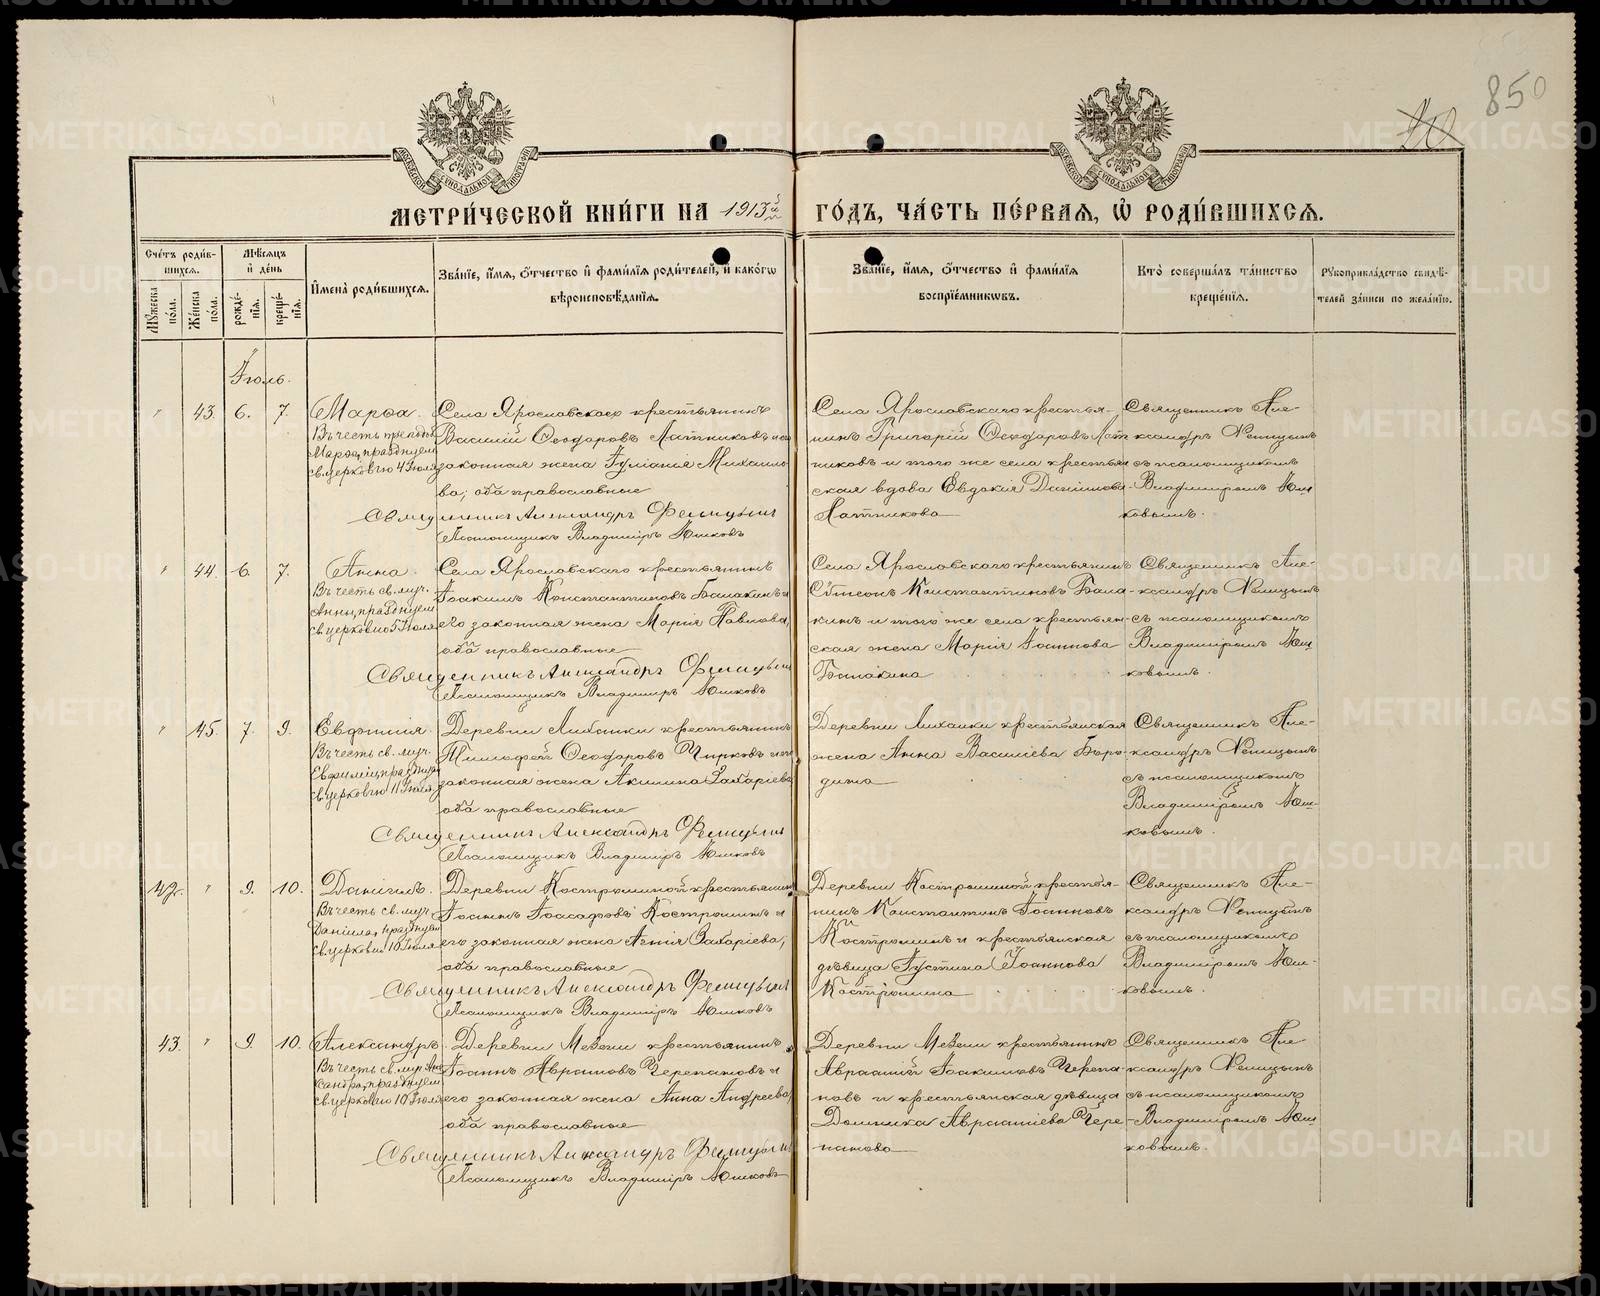 850
20
МЕТРИ́ЧЕСКОЙ КНИ́ГИ НА 1913й ГО́ДЪ, ЧА́СТЬ ПЕ́РВАЯ, Ѡ҆ РОДИ́ВШИХСЯ.
Сче́тъ роди́вшихся.
Мꙋ́жеска по́ла.
Же́нска по́ла.
Мѣ́сяцъ и҆ де́нь
рожде́нїя.
креще́нїя.
И҆мена̀ роди́вшихся.
Зва́нїе, и҆́мя, ѻ҆́тчество и҆ фами́лїя роди́телей, и҆ како́гѡ вѣроисповѣ́данїя.
Зва́нїе, и҆́мя, ѻ҆́тчество и҆ фами́лїя воспрїе́мникѡвъ.
Кто̀ соверша́лъ та́инство креще́нїя.
Рꙋкоприкла́дство свидѣ́телей за́писи по жела́нїю.
Іюль.
" 43. 6. 7.
Марѳа.
Въ честь препод.
Марѳы, празднуем.
св. церковію 4 Іюля
Села Ярославскаго крестьянинъ
Василій Ѳеодоровъ Латниковъ и его
законная жена Іуліанія Михаило-
ва, оба православные
Священникъ Александръ
Псаломщикъ Владиміръ Юшковъ
Села Ярославскаго крестья-
нинъ Григорій Ѳеодоровъ Лат
никовъ и того же села крестьян
ская вдова Евдокія Даніилова
Латникова
Священникъ Але-
ксандръ
съ псаломщикомъ
Владиміромъ Юш
ковымъ.
" 44. 6. 7.
Анна.
Въ честь св. муч.
Анны, празднуем.
св. церковію 5 Іюля
Села Ярославскаго крестьянинъ
Іоакимъ Константиновъ Балакинъ и
его законная жена Марія Павлова,
оба православные
Священникъ Александръ
Псаломщикъ Владиміръ Юшковъ
Села Ярославскаго крестьянинъ
Сѵмеонъ Константиновъ Бала-
кинъ и того же села крестьян-
ская жена Марія Іоаннова
Балакина
Священникъ Але-
ксандръ
съ псаломщикомъ
Владиміромъ Юш
ковымъ.
" 45. 7. 9.
Евфимія.
Въ честь св. муч.
Евфиміи, празднуем.
св. церковію 11 Іюля
Деревни крестьянинъ
Тимофей Ѳеодоровъ Чирковъ и его
законная жена Акилина Захаріева
оба православные
Священникъ Александръ
Псаломщикъ Владиміръ Юшковъ
Деревни крестьянская
жена Анна Василіева Боро-
дина
Священникъ Але-
ксандръ
съ псаломщикомъ
Владиміромъ Юш-
ковымъ.
42. " 9. 10.
Даніилъ.
Въ честь св. муч.
Даніила, празднуем
св. церковію 10 Іюля
Деревни Костроминой крестьянинъ
Іоаннъ Іоасафовъ Костроминъ и
его законная жена Агнія Захаріева,
оба православные
Священникъ Александръ
Псаломщикъ Владиміръ Юшковъ
Деревни Костроминой крестья-
нинъ Константинъ Іоанновъ
Костроминъ и крестьянская
дѣвица Іустина Іоаннова
Костромина
Священникъ Але-
ксандръ
съ псаломщикомъ
Владиміромъ Юш-
ковымъ.
43. " 9. 10.
Александръ.
Въ честь св. муч. Але
ксандра, празднуем
св. церковію 10 Іюля
Деревни Мезени крестьянинъ
Іоаннъ Аврамовъ Черепановъ и
его законная жена Анна Андреева,
оба православные
Священникъ Александръ
Псаломщикъ Владиміръ Юшковъ
Деревни Мезени крестьянинъ
Авраамій Іоакимовъ Черепа-
новъ и крестьянская дѣвица
Домника Авраамиева Чере-
панова
Священникъ Але
ксандръ
съ псаломщикомъ
Владиміромъ Юш
ковымъ.
METRIKI.GASO-URAL.RU